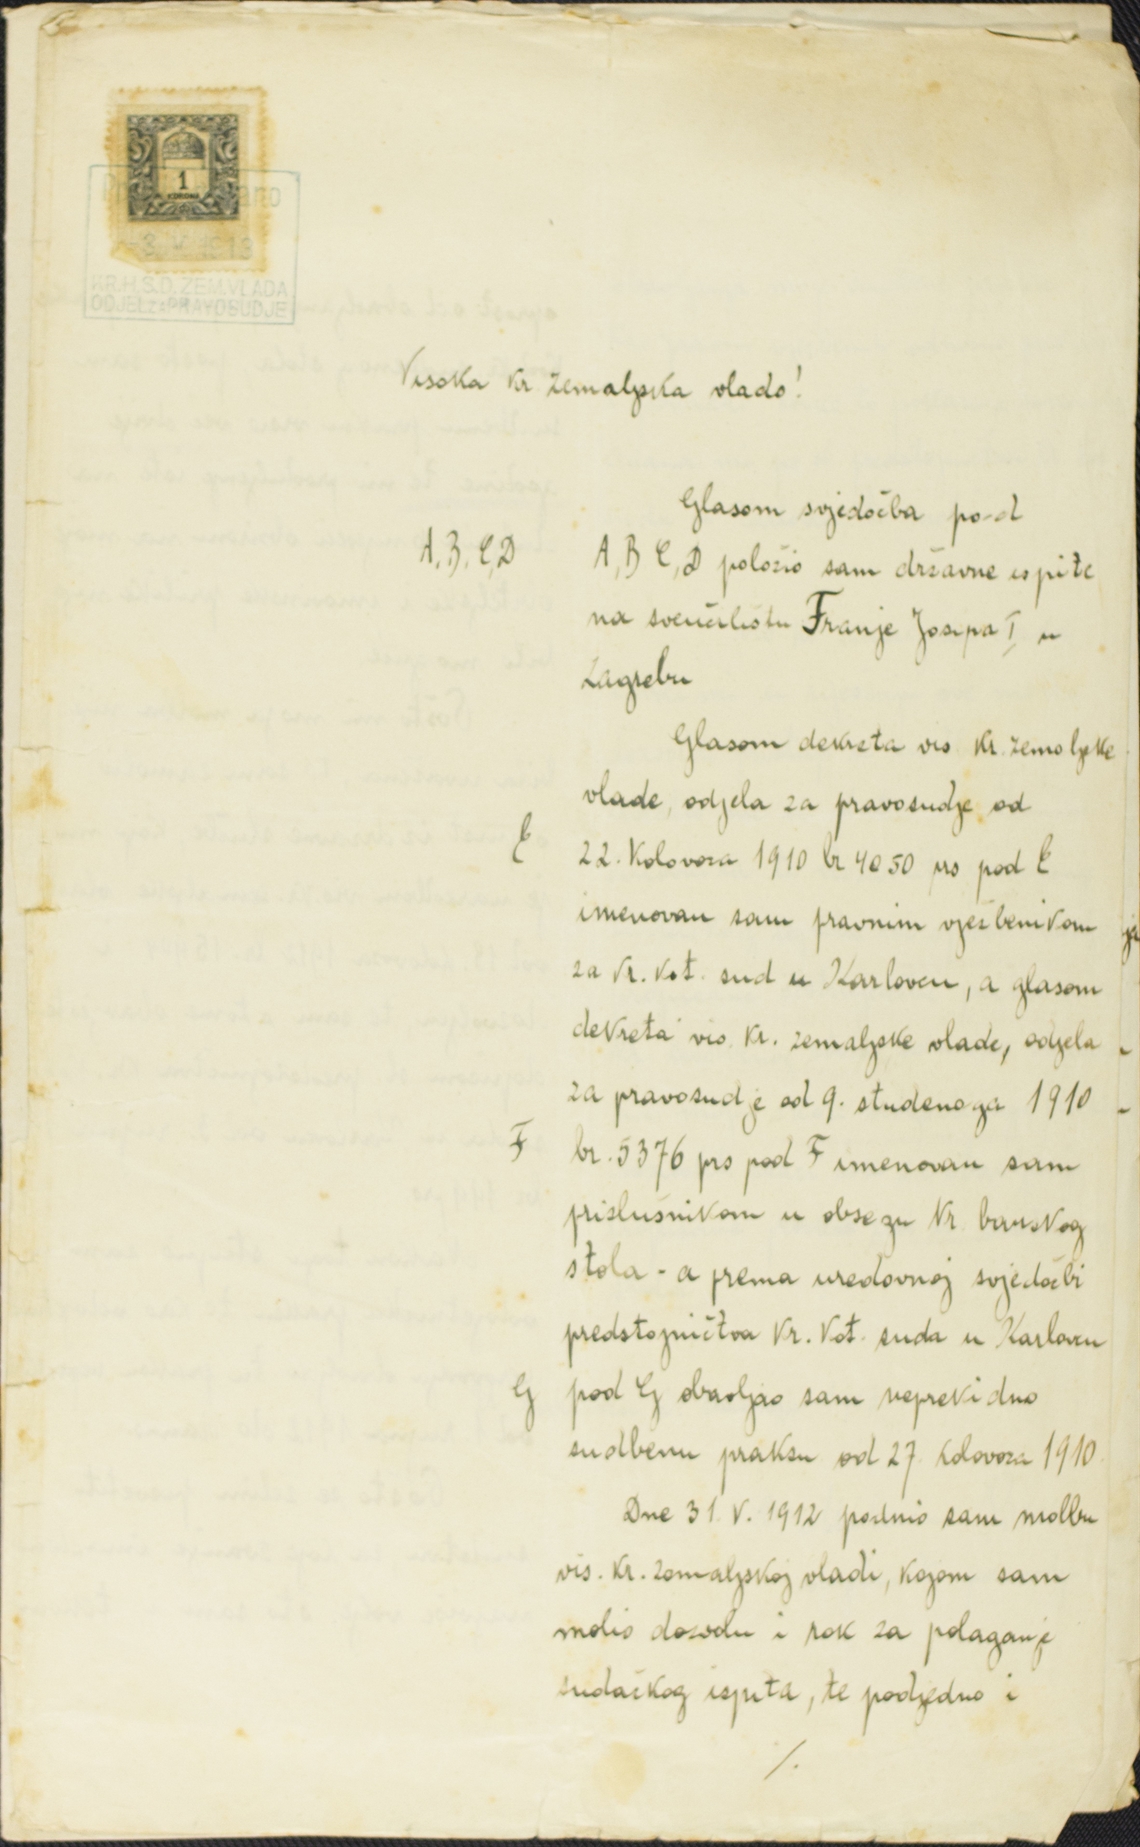 1
KORONA
KR.H.S.D.ZEM.VLADA
ODJEL ZA PRAVOSUDJE
Visoka kr zemaljska vlado!
Glasom svjedočba pod
A, B, C, D
A, B C, D položio sam državne ispite
na sveučilištu Franje Josipa I, u
Zagrebu
Glasom dekreta vis. kr. zemaljske
vlade, odjela za pravosudje od
E
22. kolovoza 1910 br 4050 prs pod E
imenovan sam pravnim vježbenikom
za kr. kot. sud u Karlovcu, a glasom
dekreta vis. kr. zemaljske vlade, odjela
za pravosudje od 9. studenoga 1910
F
br. 5376 prs pod F imenovan sam
prislušnikom u obsegu kr. banskog
stola - a prema uredovnoj svjedočbi
predstojničtva kr. kot. suda u Karlovcu
G
pod G obavljao sam neprekidno
sudbenu praksu od 27. kolovoza 1910.
Dne 31. V. 1912 podnio sam molbu
vis. kr. zemaljskoj vladi, kojom sam
molio dozvolu i rok za polaganje
sudačkog ispita, te podjedno i
./.